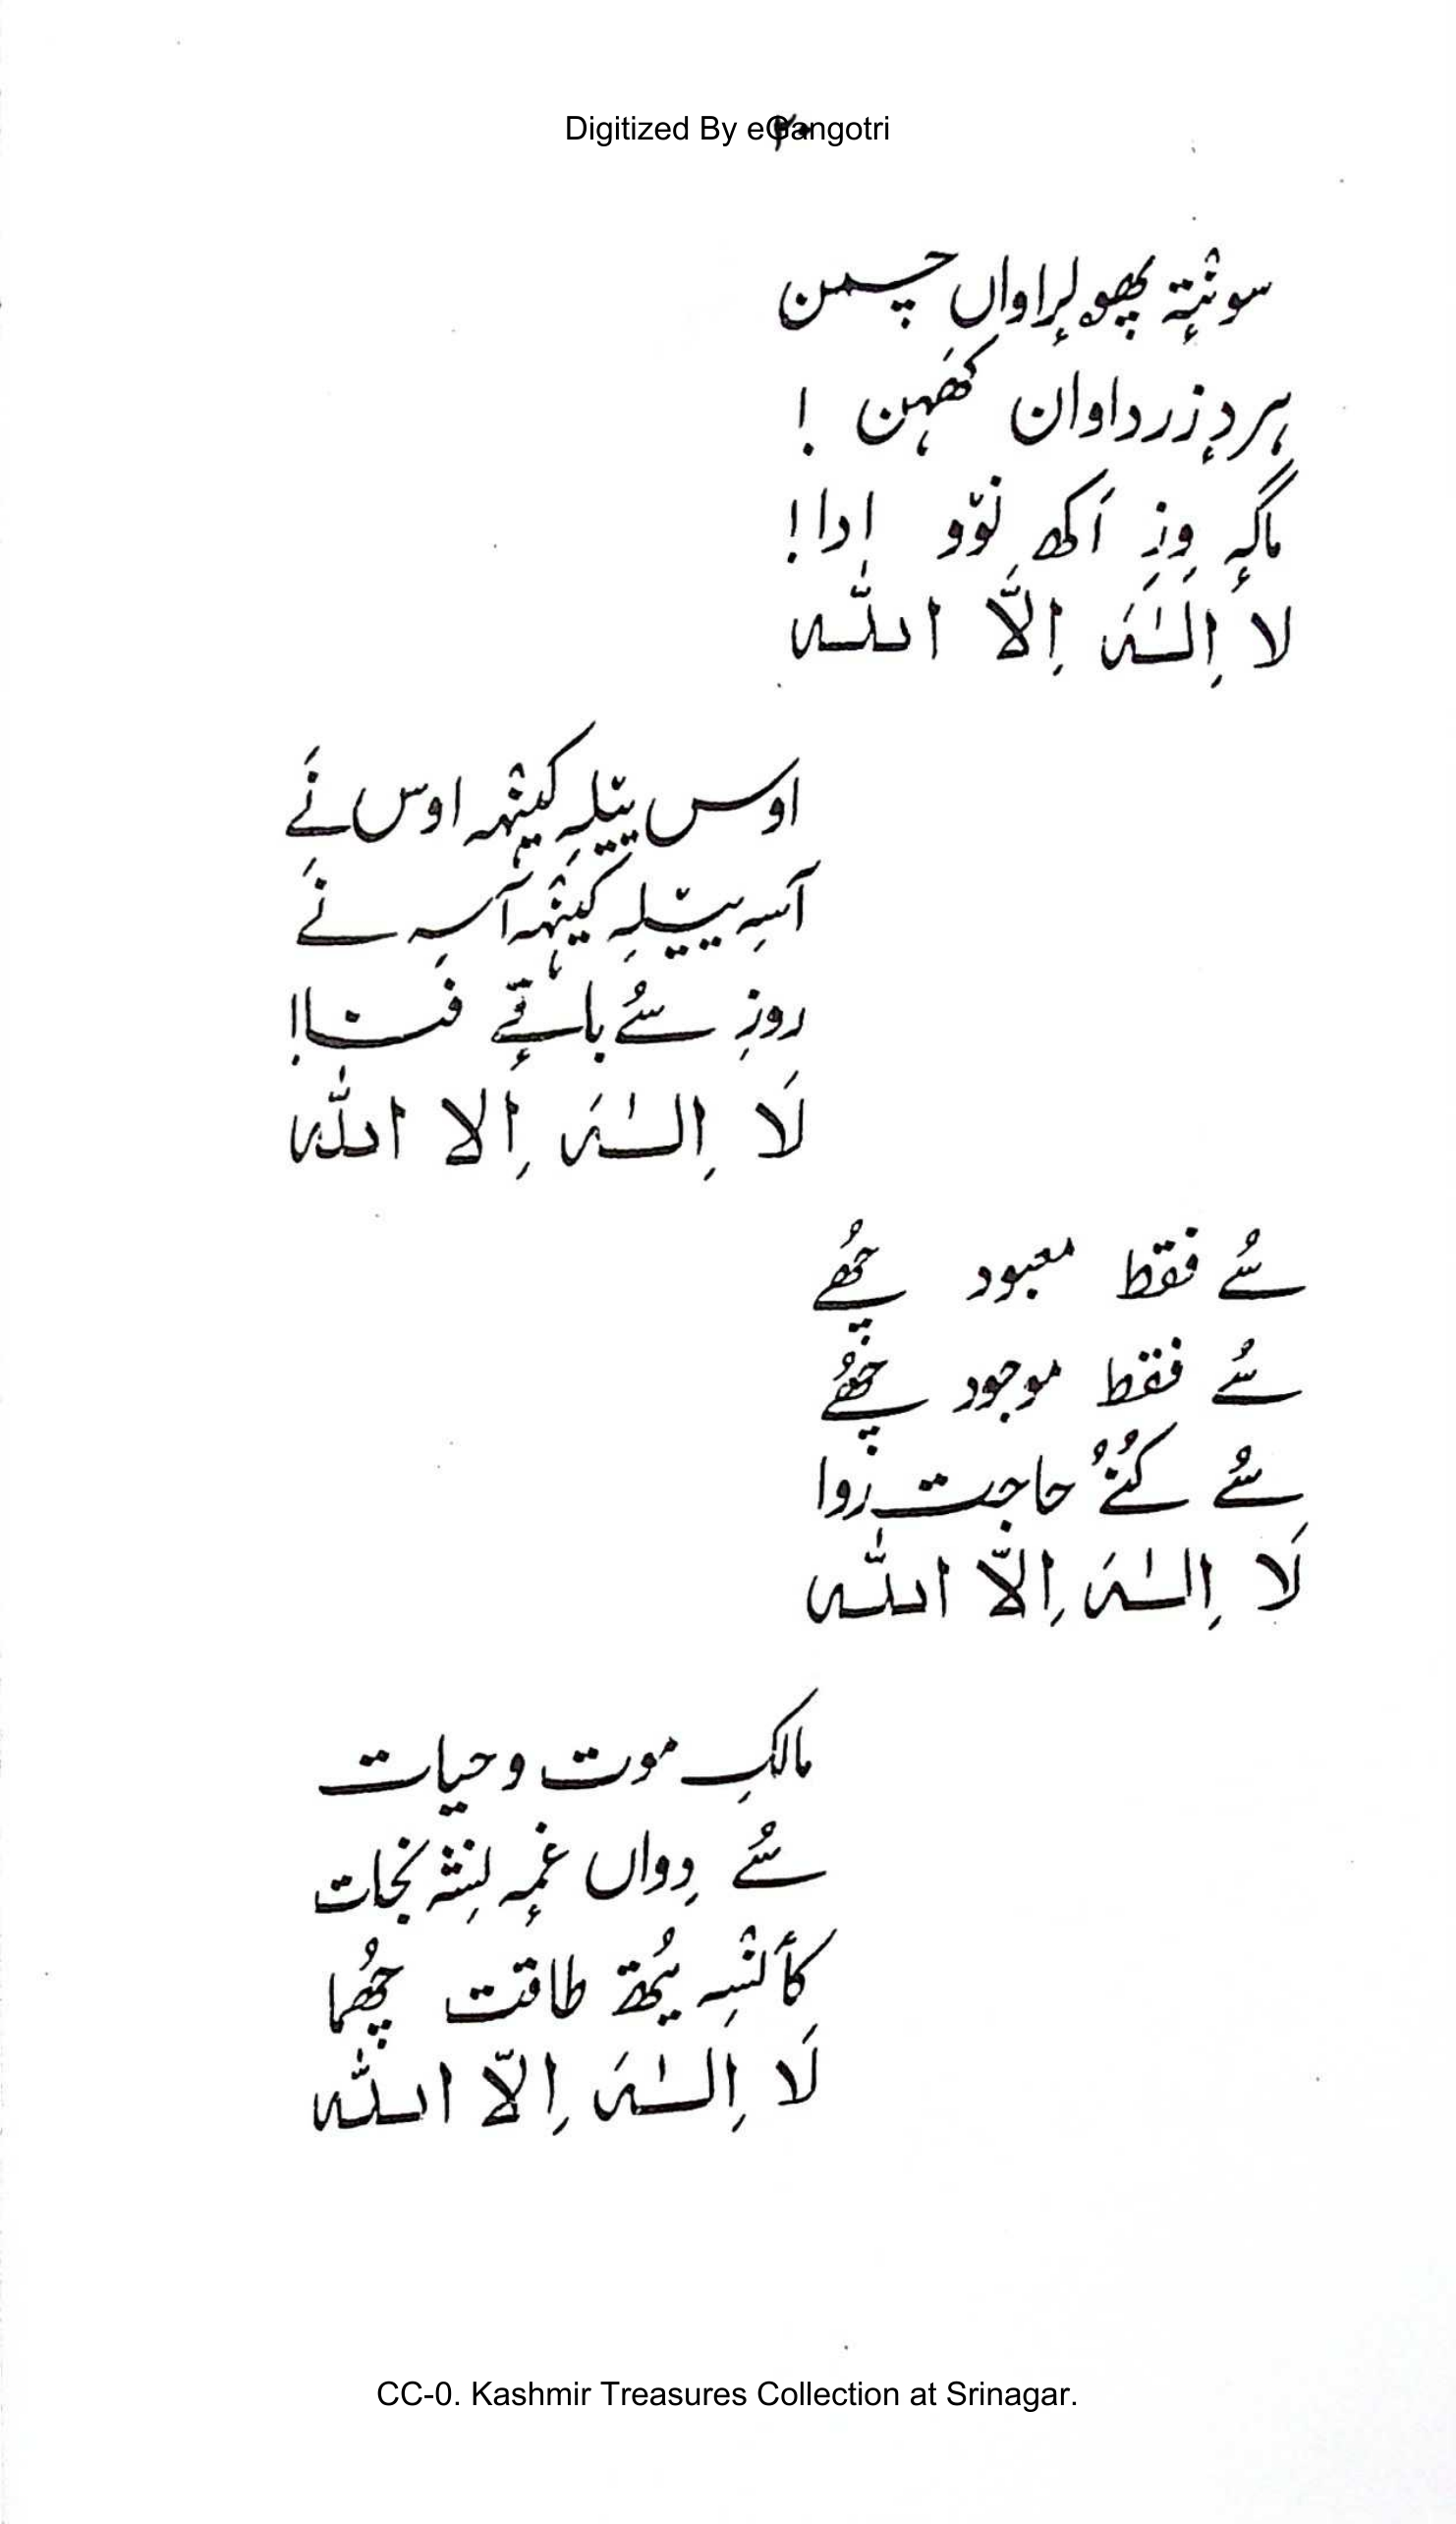 Digitized By eGangotri
۲۰
سونٛتہٕ پھولہٕ راواں چمن
ہردٕ زرداوان کَھہن !
ماگہٕ وِزِ اَکھ نوٚو اِدا!
لا اِلٰہَ اِلَّا اللّٰہ
اوس ییٚلہِ کینٛہہ اوس نَے
آسہِ ییٚلہِ کینٛہہ آسہِ نَے
روزِ سُے باقٕے فنا!
لَا اِلٰہَ اِلا اللّٰہ
سُے فقط معبود چُھے
سُے فقط موجود چُھے
سُے کُنُے حاجت روا
لَا اِلٰہَ اِلَّا اللّٰہ
مالکِ موت و حیات
سُے دِواں غمہٕ نِشہِ نجات
کأنٛسہِ یُتھ طاقت چُھما
لَا اِلٰہَ اِلَّا اللّٰہ
CC-0. Kashmir Treasures Collection at Srinagar.